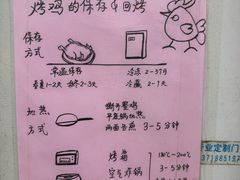 烤鸡的保存与回烤
保存
方式
常温保存
冷冻 2-3个月
春夏1-2天 秋冬2-3天
冷藏 1-2天
加热
方式
撕开整鸡
平底锅加热
两面各煎 3-5分钟
烤箱 180℃-200℃
空气炸锅 3-5分钟
业定制门